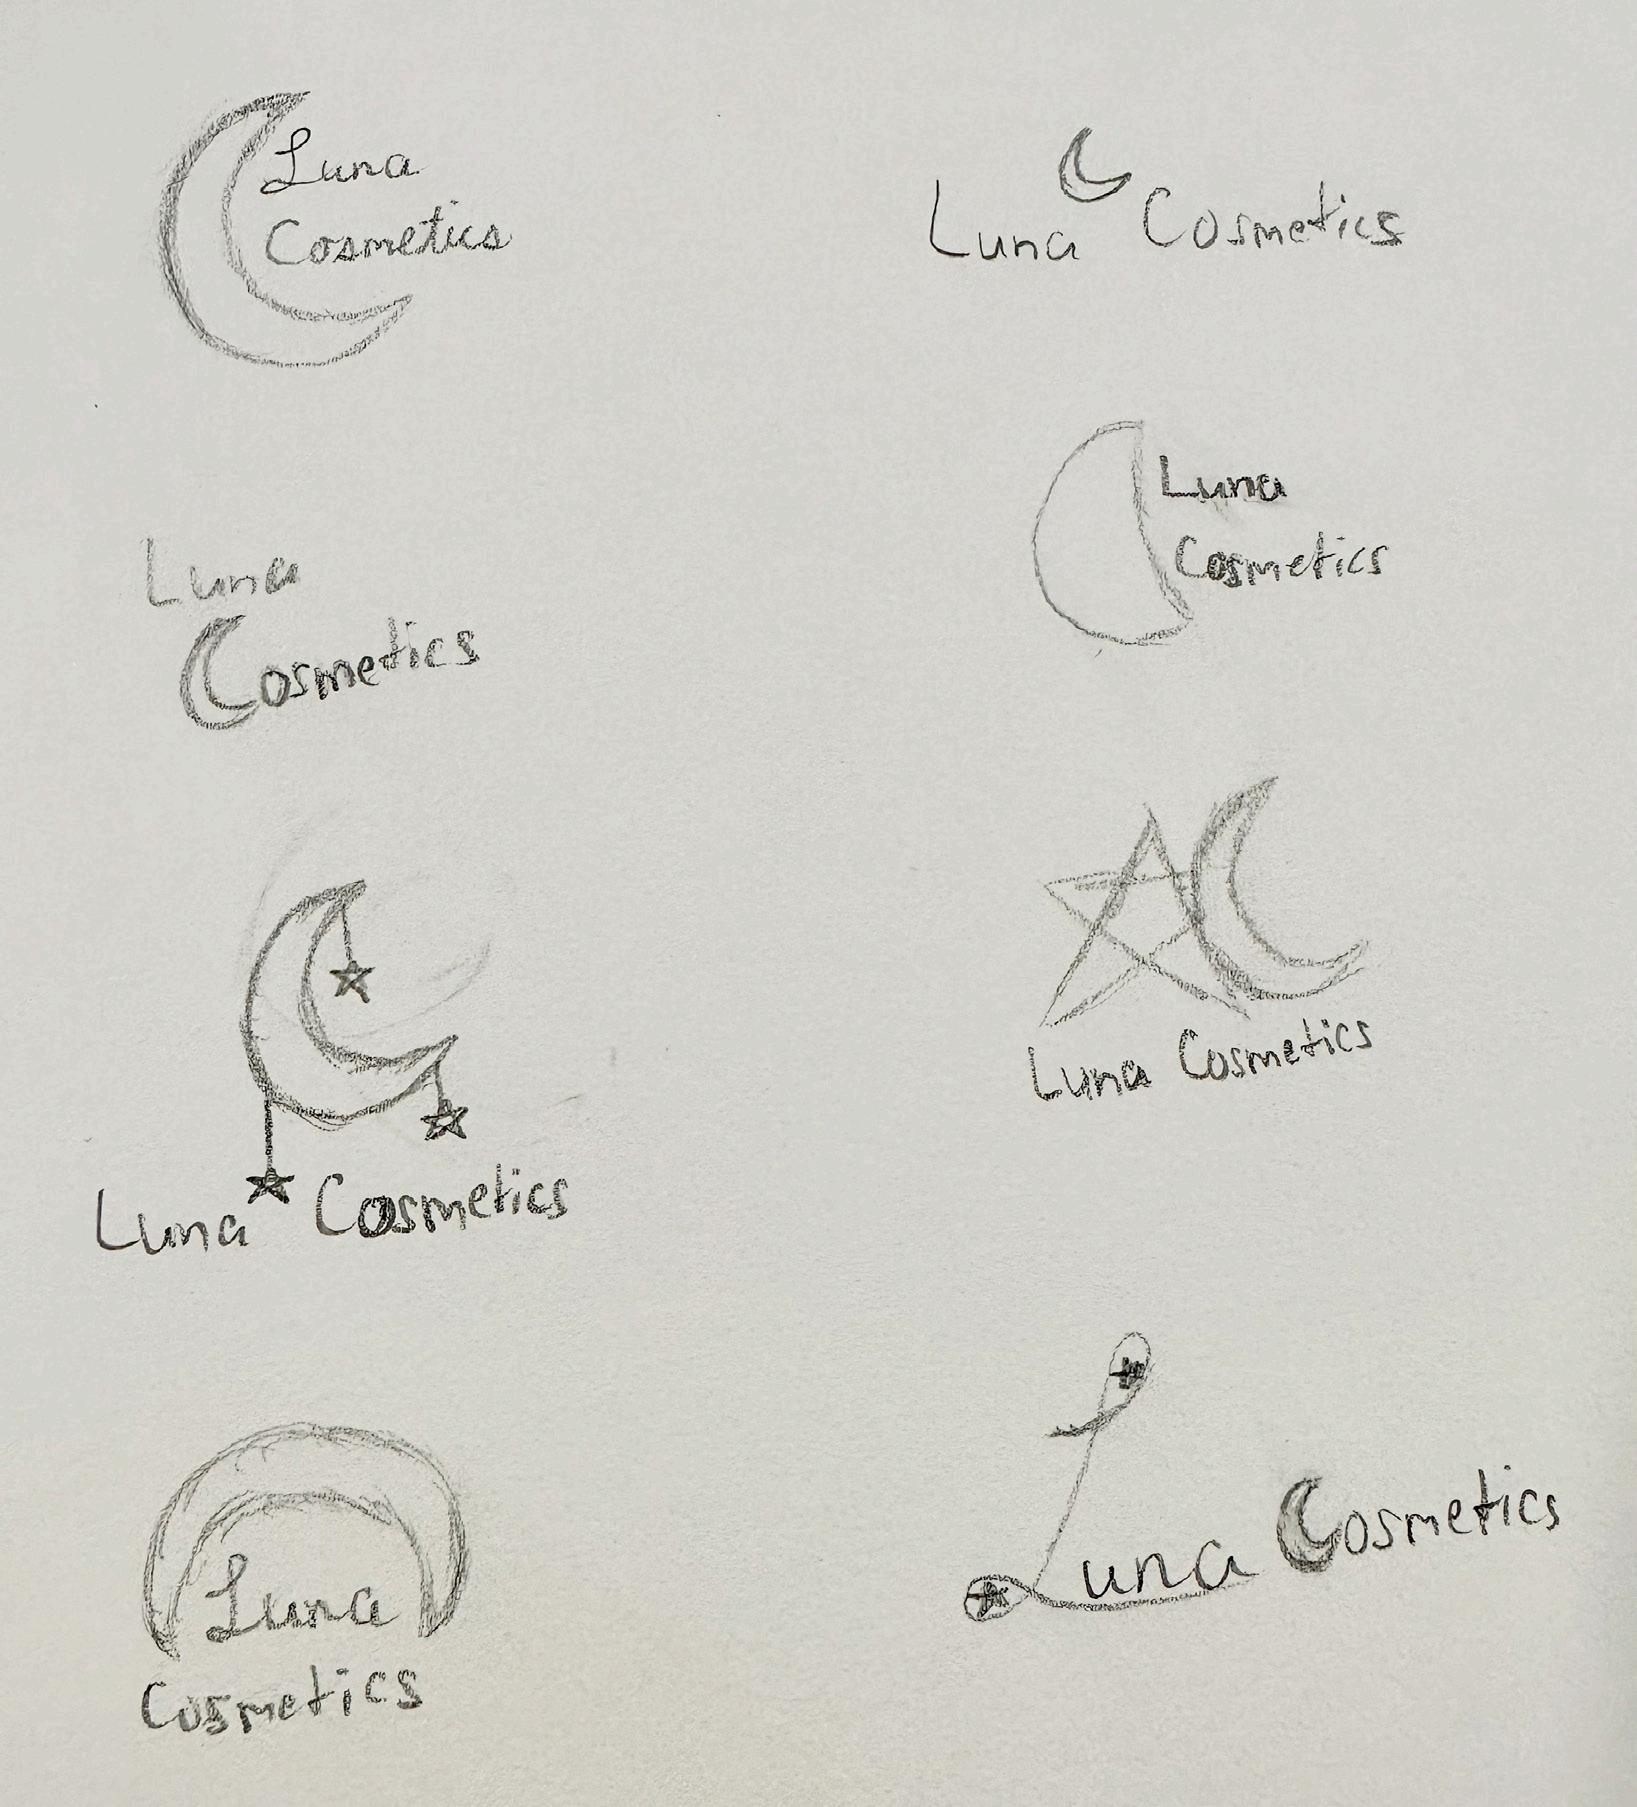 Luna
Cosmetics
Luna Cosmetics
Luna
Cosmetics
Luna
Cosmetics
Luna Cosmetics
Luna Cosmetics
Luna
Cosmetics
Luna Cosmetics